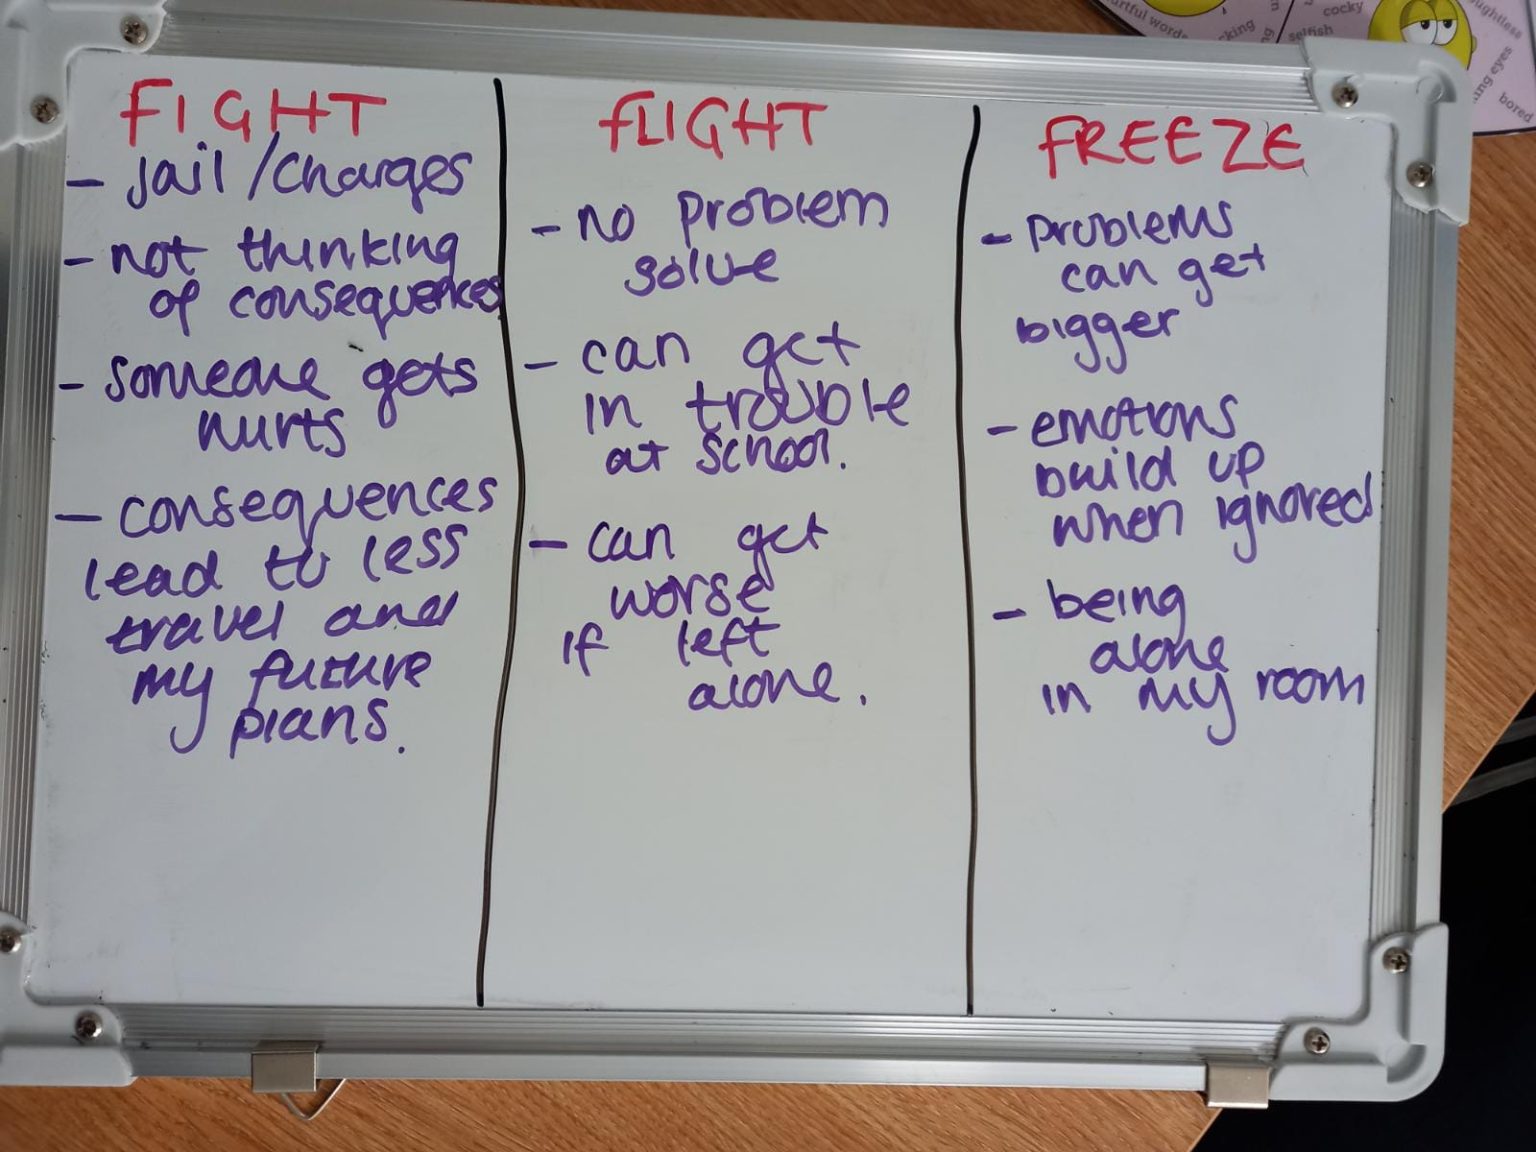 FIGHT
- jail / charges
- not thinking
of consequences
- someone gets
hurts
- consequences
lead to less
travel and
my future
plans.
FLIGHT
- no problem
solve
- can get
in trouble
at school.
- can get
worse
if left
alone.
FREEZE
- problems
can get
bigger
- emotions
build up
when ignored
- being
alone
in my room
cocky
selfish
bored